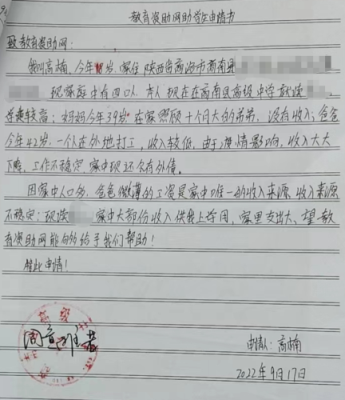 教育资助网助学生申请书
致教育资助网：
我叫高楠，今年 岁，家住陕西省商洛市商南县
现家庭中有四口人，本人现在在商南县高级中学就读
妈妈今年39岁，在家照顾十个月大的弟弟，没有收入，爸爸
今年42岁，一个人在外地打工，收入较低，由于疫情影响，收入大大
下降，工作不稳定，家中现还欠有外债。
因家中人口多，爸爸微薄的工资是家中唯一的收入来源，收入来源
不稳定；现读 家中大部份收入供我上学用，家里支出大，望教
育资助网能够给予我们帮助！
特此申请！
申请人：高楠
2022年9月17日